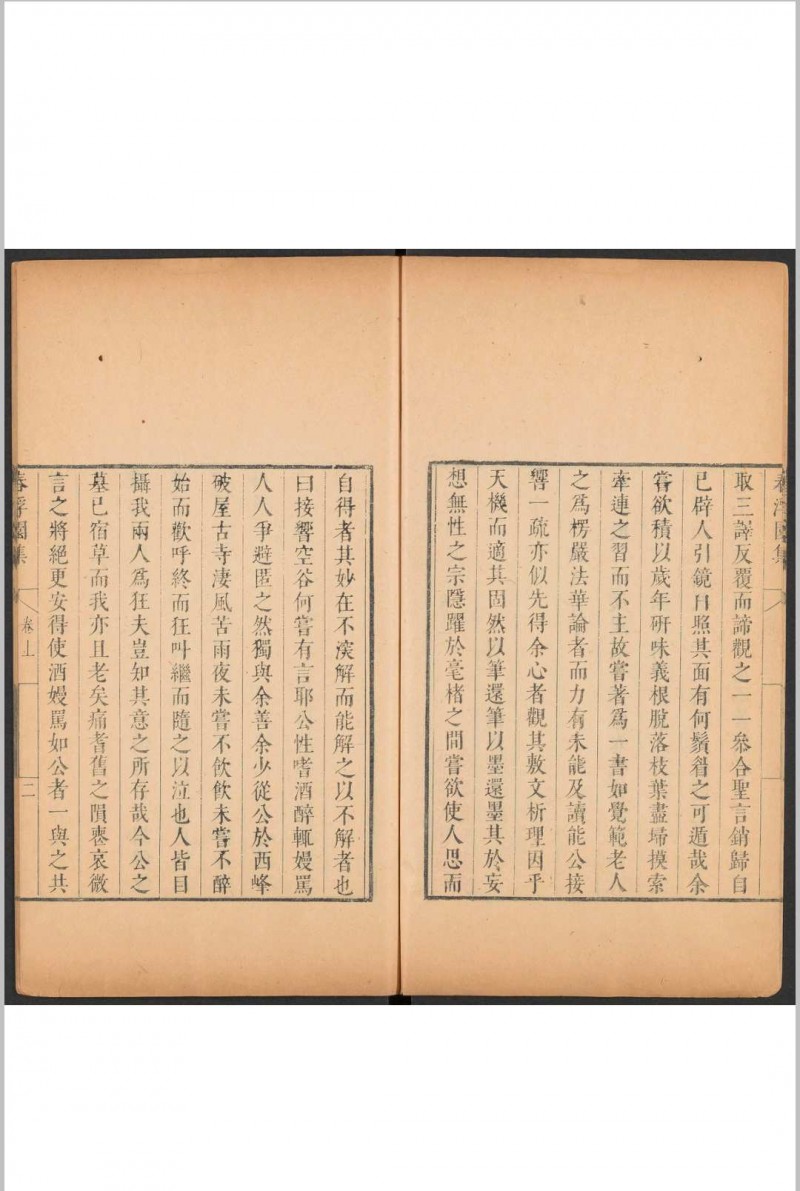 取三譯反覆而諦觀之一一叅合聖言銷歸自
已辟人引鏡自照其面有何鬚眉之可遁哉余
嘗欲積以歲年研味義根脫落枝葉盡埽摸索
牽連之習而不主故嘗著爲一書如覺範老人
之爲楞嚴法華論者而力有未能及讀能公接
響一疏亦似先得余心者觀其敷文析理因乎
天機而適其固然以筆還筆以墨還墨其於妄
想無性之宗隱躍於毫楮之間嘗欲使人思而
自得者其妙在不湥解而能解之以不解者也
曰接響空谷何嘗有言耶公性嗜酒醉輒嫚罵
人人爭避匿之然獨與余善余少從公於西峰
破屋古寺淒風苦雨夜未嘗不飲飲未嘗不醉
始而歡呼終而狂叫繼而隨之以泣也人皆目
攝我兩人爲狂夫豈知其意之所存哉今公之
墓已宿草而我亦且老矣痛耆舊之隕喪哀微
言之將絕更安得使酒嫚罵如公者一與之共
春浮園集
卷上
二